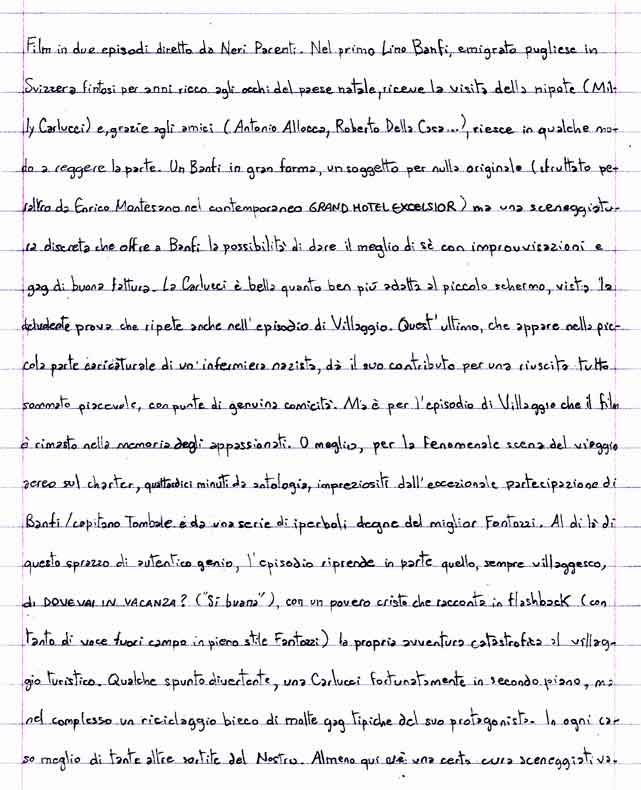 Film in due episodi diretto da Neri Parenti. Nel primo Lino Banfi, emigrato pugliese in
Svizzera fintosi per anni ricco agli occhi del paese natale, riceve la visita della nipote (Mil-
ly Carlucci) e, grazie agli amici (Antonio Allocca, Roberto Della Casa...), riesce in qualche mo-
do a reggere la parte. Un Banfi in gran forma, un soggetto per nulla originale (sfruttato pe-
raltro da Enrico Montesano nel contemporaneo GRAND HOTEL EXCELSIOR) ma una sceneggiatu-
ra discreta che offre a Banfi la possibilità di dare il meglio di sè con improvvisazioni e
gag di buona fattura. La Carlucci è bella quanto ben più adatta al piccolo schermo, vista la
deludente prova che ripete anche nell'episodio di Villaggio. Quest'ultimo, che appare nella pic-
cola parte caricaturale di un'infermiera nazista, dà il suo contributo per una riuscita tutto
sommato piacevole, con punte di genuina comicità. Ma è per l'episodio di Villaggio che il film
è rimasto nella memoria degli appassionati. O meglio, per la fenomenale scena del viaggio
aereo sul charter, quattordici minuti da antologia, impreziositi dall'eccezionale partecipazione di
Banfi/capitano Tombale e da una serie di iperboli degne del miglior Fantozzi. Al di là di
questo sprazzo di autentico genio, l'episodio riprende in parte quello, sempre villaggesco,
di DOVE VAI IN VACANZA? ("Sì buana"), con un povero cristo che racconta in flashback (con
tanto di voce fuori campo in pieno stile Fantozzi) la propria avventura catastrofica al villag-
gio turistico. Qualche spunto divertente, una Carlucci fortunatamente in secondo piano, ma
nel complesso un riciclaggio bieco di molte gag tipiche del suo protagonista. In ogni ca-
so meglio di tante altre sortite del Nostro. Almeno qui c'è una certa cura sceneggiativa.